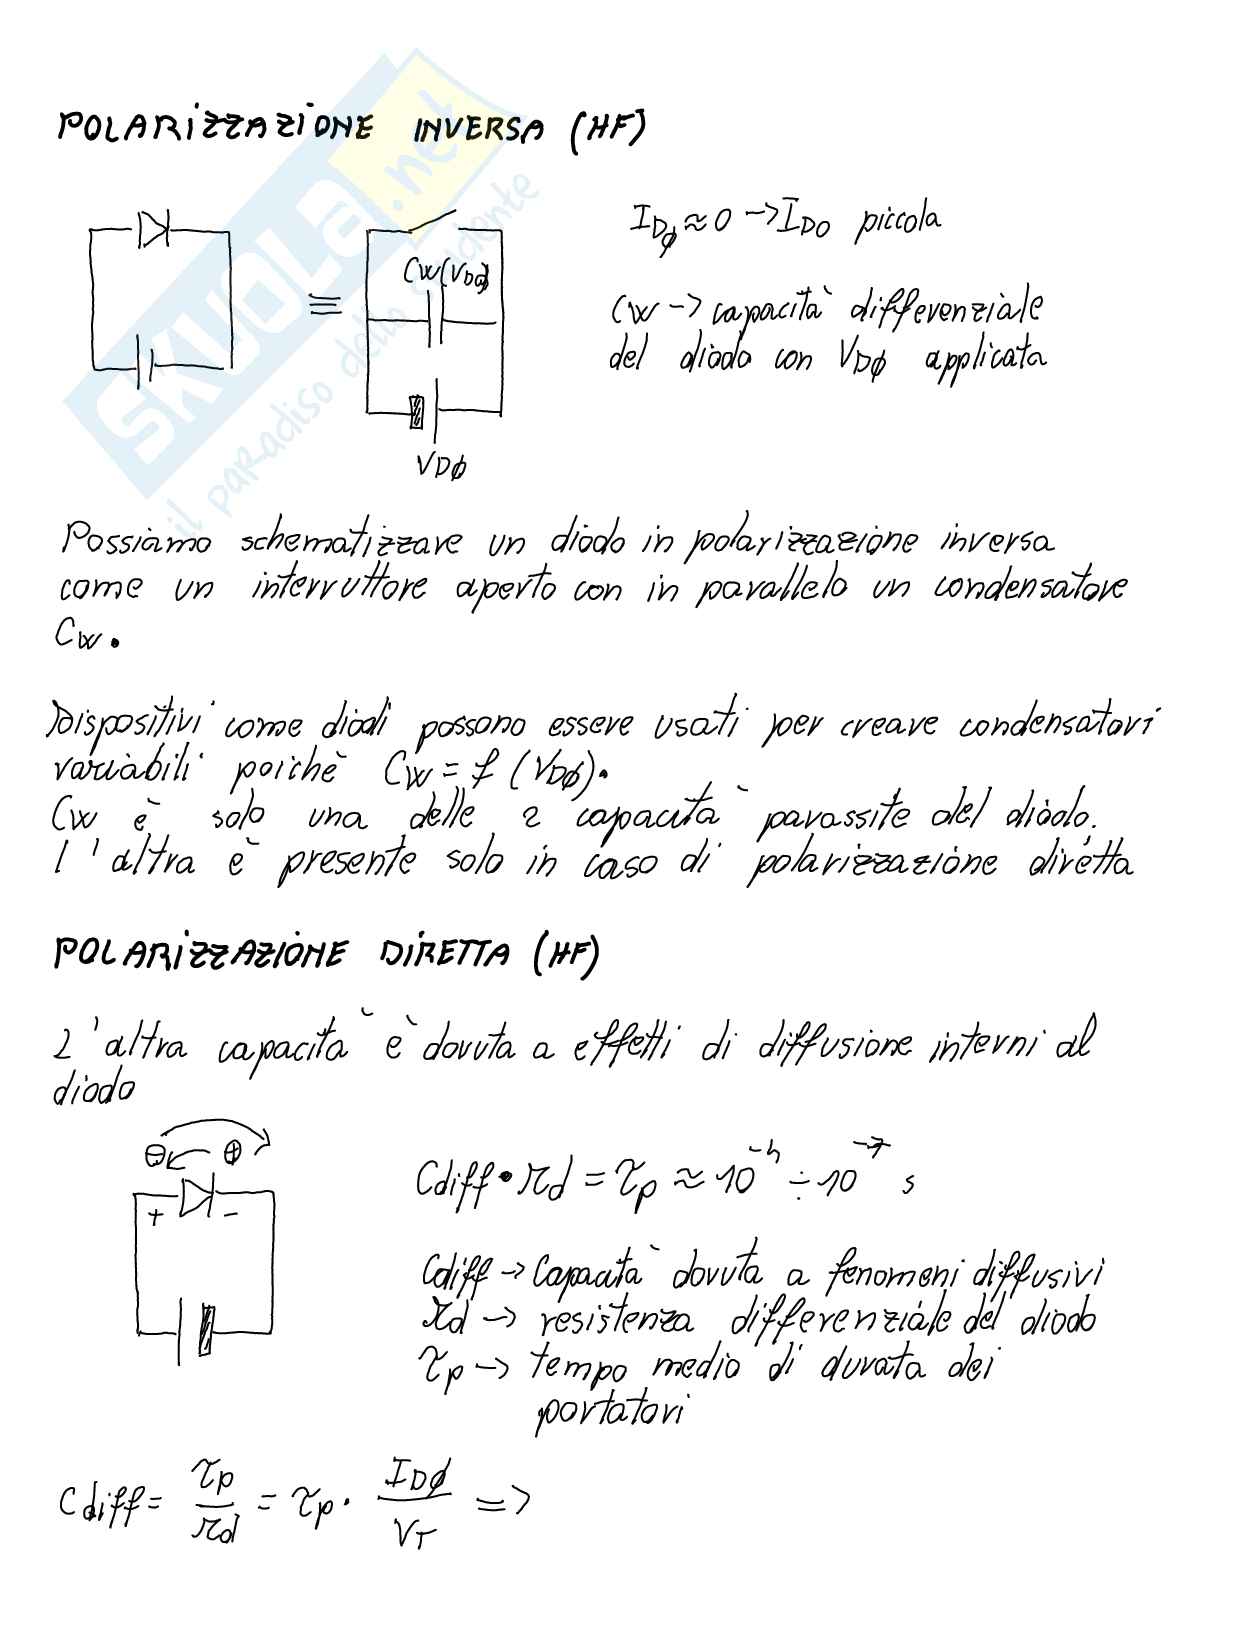 POLARIZZAZIONE INVERSA (HF)
I_Dø ≈ 0 -> I_D0 piccola
CW(VDø)
≡
CW -> capacità differenziale
del diodo con VDø applicata
VDø
Possiamo schematizzare un diodo in polarizzazione inversa
come un interruttore aperto con in parallelo un condensatore
CW.
Dispositivi come diodi possono essere usati per creare condensatori
variabili poichè CW = f (VDø).
CW è solo una delle 2 capacità parassite del diodo.
l'altra è presente solo in caso di polarizzazione diretta
POLARIZZAZIONE DIRETTA (HF)
L'altra capacità è dovuta a effetti di diffusione interni al
diodo
⊖ ⊕
+ -
Cdiff • rd = τp ≈ 10^-4 ÷ 10^-7 s
Cdiff -> Capacità dovuta a fenomeni diffusivi
rd -> resistenza differenziale del diodo
τp -> tempo medio di durata dei
portatori
Cdiff = τp/rd = τp · IDø/VT =>
SKUOLA.net
il paradiso dello studente